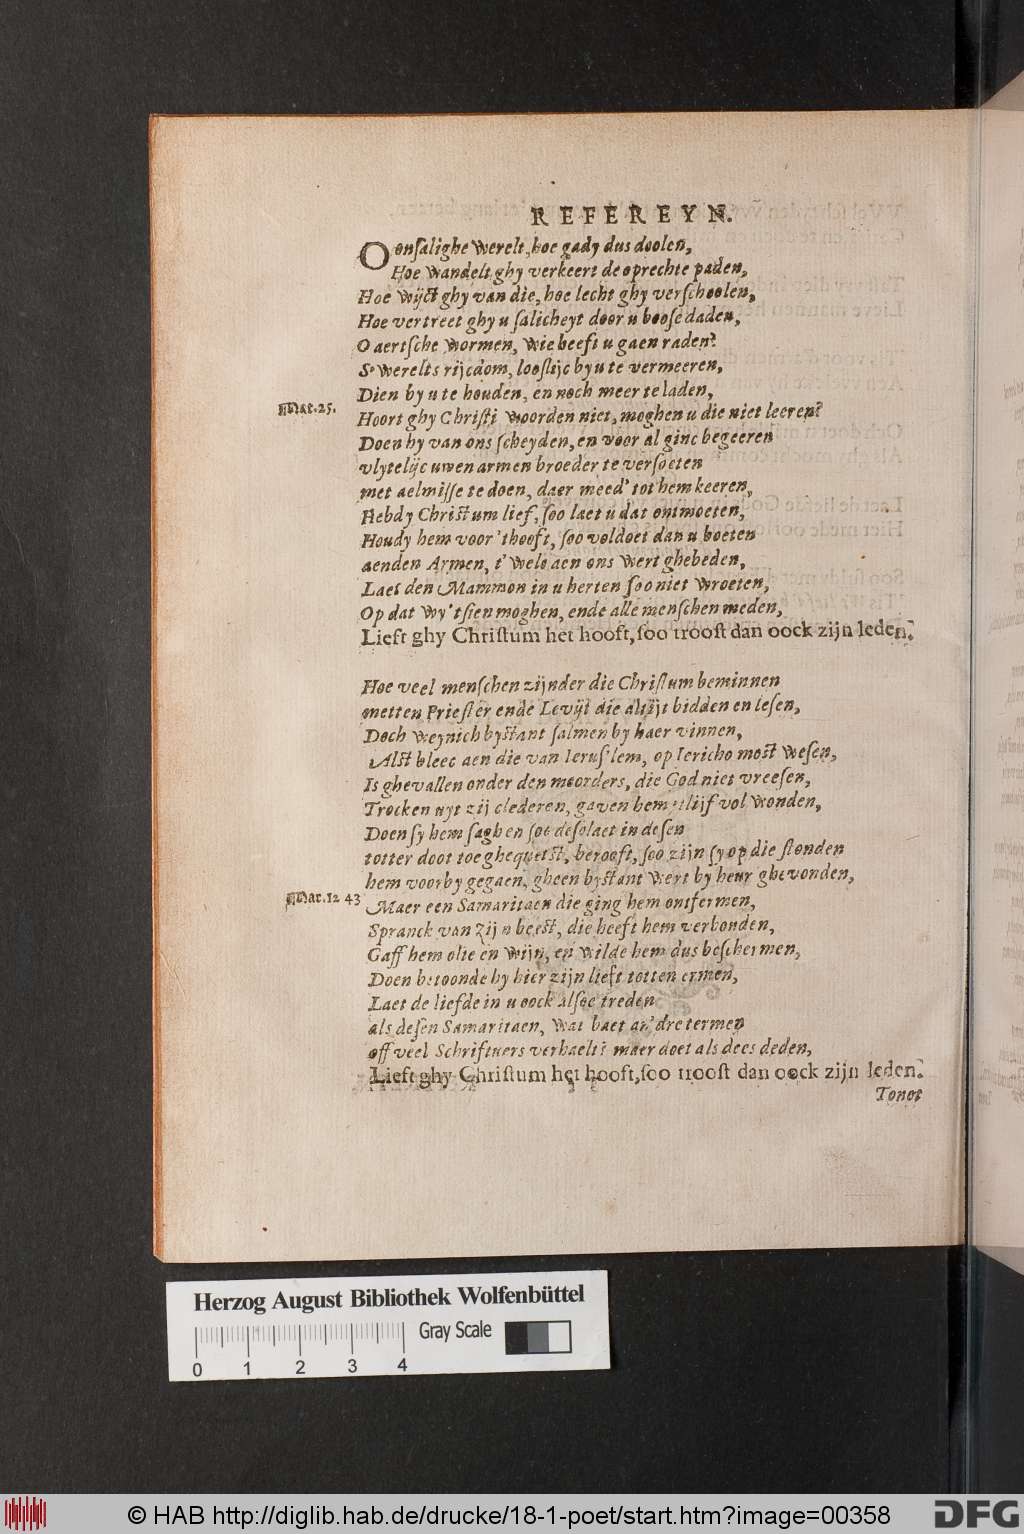 REFEREYN.
O onsalighe Werelt, hoe gady dus doolen,
Hoe Wandelt ghy verkeert de oprechte paden,
Hoe Wijct ghy van die, hoe lecht ghy verschoolen,
Hoe vertreet ghy u salicheyt door u boose daden,
O aertsche Wormen, Wie heeft u gaen raden?
S'Werelts rijcdom, looslijc by u te vermeeren,
Dien by u te houden, en noch meer te laden,
Mat.25.
Hoort ghy Christi Woorden niet, moghen u die niet leeren?
Doen hy van ons scheyden, en voor al ginc begeeren
vlytelijc uwen armen broeder te versoeten
met aelmisse te doen, daer meed' tot hem keeren,
Hebdy Christum lief, soo laet u dat ontmoeten,
Houdy hem voor 'thooft, soo voldoet dan u boeten
aenden Armen, t'Welc aen ons Wert ghebeden,
Laet den Mammon in u herten soo niet Wroeten,
Op dat Wy 'tsien moghen, ende alle menschen meden,
Lieft ghy Christum het hooft, soo troost dan oock zijn leden.
Hoe veel menschen zijnder die Christum beminnen
metten Priester ende Levijt die altijt bidden en lesen,
Doch Weynich bystant salmen by haer vinnen,
Alst bleec aen die van Ierus'lem, op Iericho most Wesen,
Is ghevallen onder den moorders, die God niet vreesen,
Trocken uyt zij clederen, gaven hem 't lijf vol Wonden,
Doen sy hem saghen soo desolaet in desen
totter doot toe ghequetst, berooft, soo zijn sy op die stonden
hem voorby gegaen, gheen bystant Wert by heur ghevonden,
Mar.12 43
Maer een Samaritaen die ging hem ontfermen,
Spranck van zijn beest, die heeft hem verbonden,
Gaff hem olie en Wijn, en Wilde hem dus beschermen,
Doen betoonde hy hier zijn lieft totten ermen,
Laet de liefde in u oock alsoo treden
als desen Samaritaen, Wat baet an'dre termen
off veel Schriftuers verhaelt? maer doet als dees deden,
Lieft ghy Christum het hooft, soo troost dan oock zijn leden.
Tonot
Herzog August Bibliothek Wolfenbüttel
Gray Scale
0 1 2 3 4
© HAB http://diglib.hab.de/drucke/18-1-poet/start.htm?image=00358
DFG